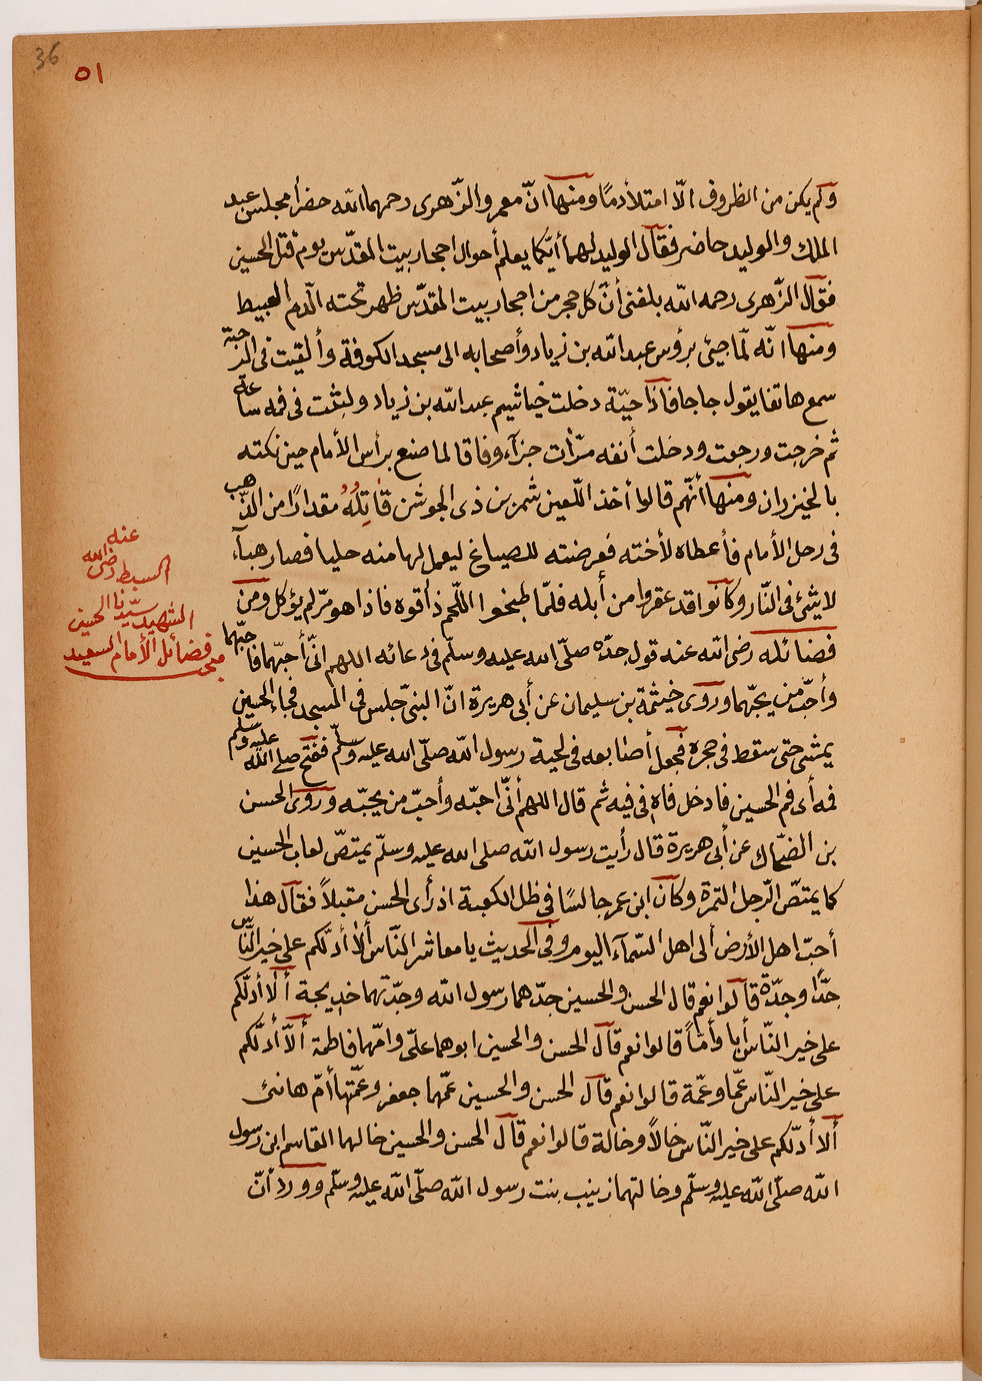 36
٥١
وكم يكن من الظروف الّا امتلأ دمًا ومنها انّ معمر والزّهرى رحمهما الله حضرا مجلس عبد
الملك والوليد حاضر فقال الوليد لهما أيّكما يعلم أحوال احجار بيت المقدّس يوم قتل الحسين
فقال الزّهرى رحمه الله بلغنى أنّ كل حجر من احجار بيت المقدّس ظهر تحته الدّم العبيط
ومنها انّه لمّا جيئ برؤس عبد الله بن زياد وأصحابه الى مسجد الكوفة وألقيت فى الرّحبة
سمع هاتفا يقول جا جا فاذا حيّة دخلت خياشيم عبد الله بن زياد ولبثت فى فمه ساعة
ثم خرجت ورجعت ودخلت أنفه مرّات جزآء وفاقا لما صنع برأس الأمام حين نكته
بالخيزران ومنها أنّهم قالوا أخذ اللّعين شمر بن ذى الجوشن قاتِلُهُ مقدارًا من الذّهب
فى رحل الأمام فأعطاه لأخته فعرضته للصياغ ليعمل لها منه حليا فصار هبآء
لا يشئ فى النّار وكانوا قد عقروا من أبله فلمّا طبخوا اللّحم ذاقوه فاذا هو مرّ لم يؤكل ومن
فضائله رضى الله عنه قول جدّه صلّى الله عليه وسلّم فى دعائه اللهم انّى أحبّهما فاحبّهما
وأحبّ من يحبّهما وروى خيثمة بن سليمان عن أبى هريرة انّ النبىّ جلس فى المسجد فجاء الحسين
يمشى حتى سقط فى حجره فجعل أصابعه فى لحية رسول الله صلّى الله عليه وسلّم ففتح صلى الله عليه وسلم
فمه أى فم الحسين فادخل فاه فى فيه ثم قال اللهم أنّى احبّه وأحبّ من يحبّه وروى الحسن
بن الضحّاك عن أبى هريرة قال رأيت رسول الله صلى الله عليه وسلّم يمتصّ لعاب الحسين
كما يمتصّ الرّجل التمرة وكان ابن عمر جالسًا فى ظل الكعبة اذ رأى الحسن مقبلاً فقال هذا
أحبّ اهل الأرض الى اهل السّمآء اليوم وفى الحديث يا معاشر النّاس ألا أدلّكم على خير النّاس
جدًّا وجدّة قالوا نعم قال الحسن والحسين جدّهما رسول الله وجدّتهما خديجة ألا أدلّكم
على خير النّاس أبا وأمّاً قالوا نعم قال الحسن والحسين ابوهما علىّ وامّهما فاطمة ألا أدلّكم
على خير النّاس عمّا وعمّة قالوا نعم قال الحسن والحسين عمّهما جعفر وعمّتهما أمّ هانئ
ألا أدلّكم على خير النّاس خالاً وخالة قالوا نعم قال الحسن والحسين خالهما القاسم ابن رسول
الله صلّى الله عليه وسلّم وخالتهما زينب بنت رسول الله صلّى الله عليه وسلّم وورد أنّ
فضائل الأمام السعيد
الشهيد سيّدنا الحسين
السبط رضى الله
عنه